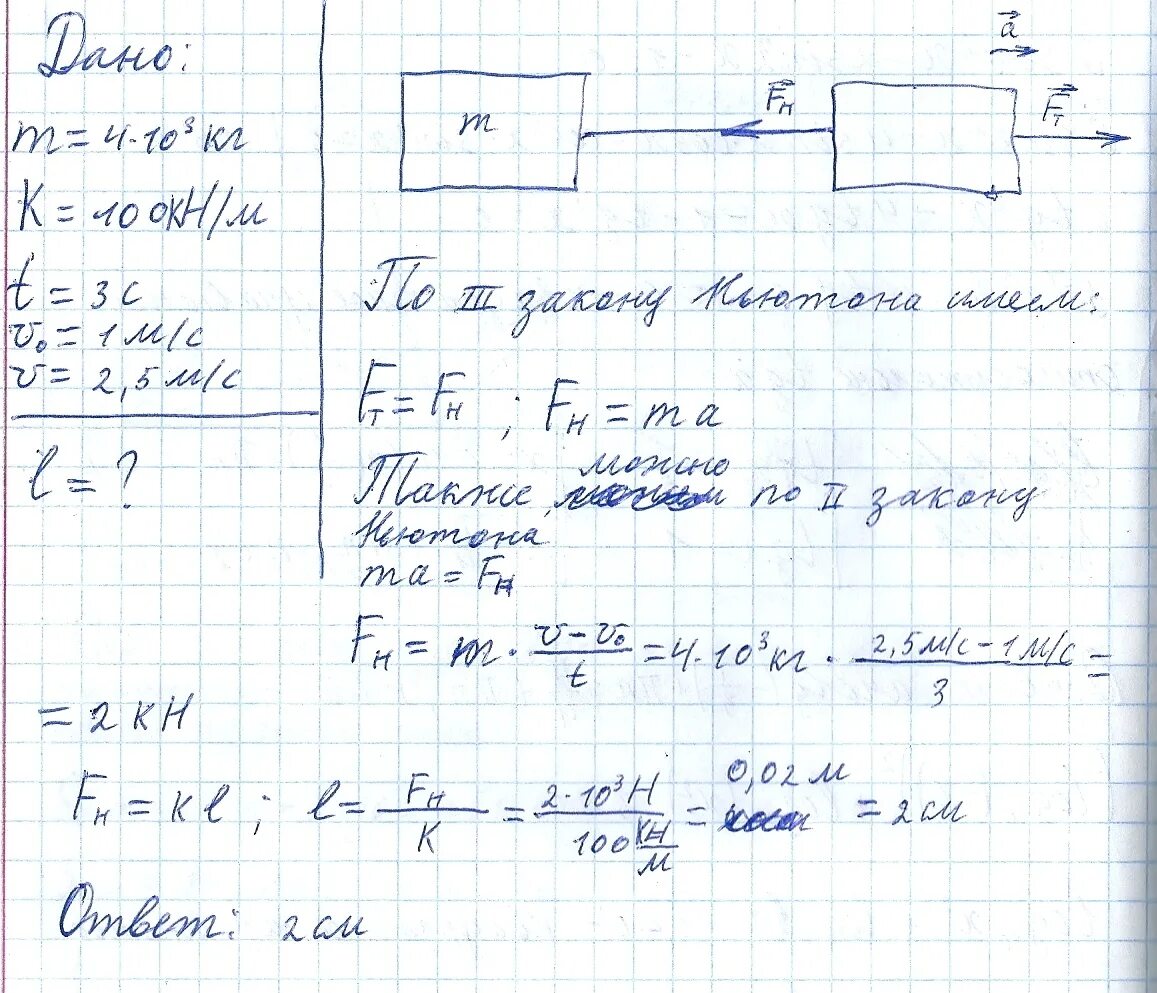 Дано:
m = 4·10³ кг
K = 100кН/м
t = 3 с
v₀ = 1 м/с
v = 2,5 м/с
l = ?
m
F⃗н
a⃗
F⃗т
По III закону Ньютона имеем:
Fт = Fн ; Fн = ma
можно
Также, по II закону
Ньютона
ma = Fн
Fн = m · (v – v₀)/t = 4·10³ кг · (2,5 м/с – 1 м/с)/3 =
= 2 кН
Fн = kl ; l = Fн/K = 2·10³ Н/100 кН/м = 0,02 м = 2 см
Ответ: 2 см